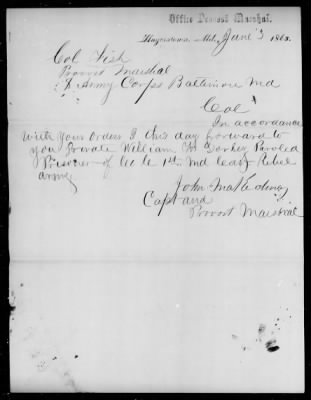 Office Provost Marshal.
Hagerstown Md. June 3 1863.
Col Fish
Provost Marshal
8 Army Corps Baltimore Md
Col
In accordance
with your orders I this day forward to
you Private William H. Paroled
Prisoner of Co 1st Md Rebel
army
John
Capt and
Provost Marshal